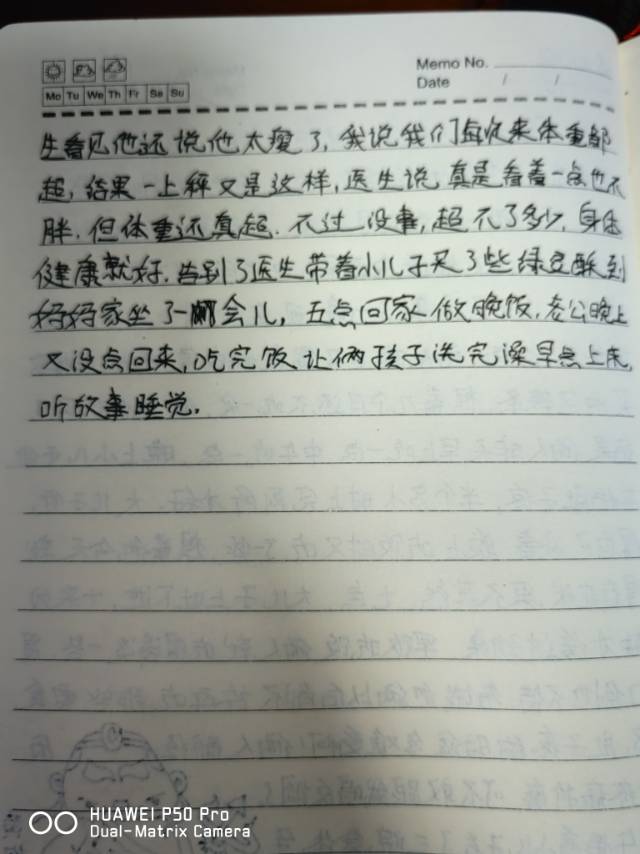 Memo No.
Date / /
Mo Tu We Th Fr Sa Su
生看见他还说他太瘦了,我说我们每次来体重都
超,结果一上秤又是这样,医生说真是看着一点也不
胖,但体重还真超.不过没事,超不了多少,身体
健康就好.告别了医生带着小儿子买了些绿豆酥到
好好家坐了一会儿,五点回家做晚饭,老公晚上
又没点回来,吃完饭让俩孩子洗完澡早点上床,
听故事睡觉.
HUAWEI P50 Pro
Dual-Matrix Camera